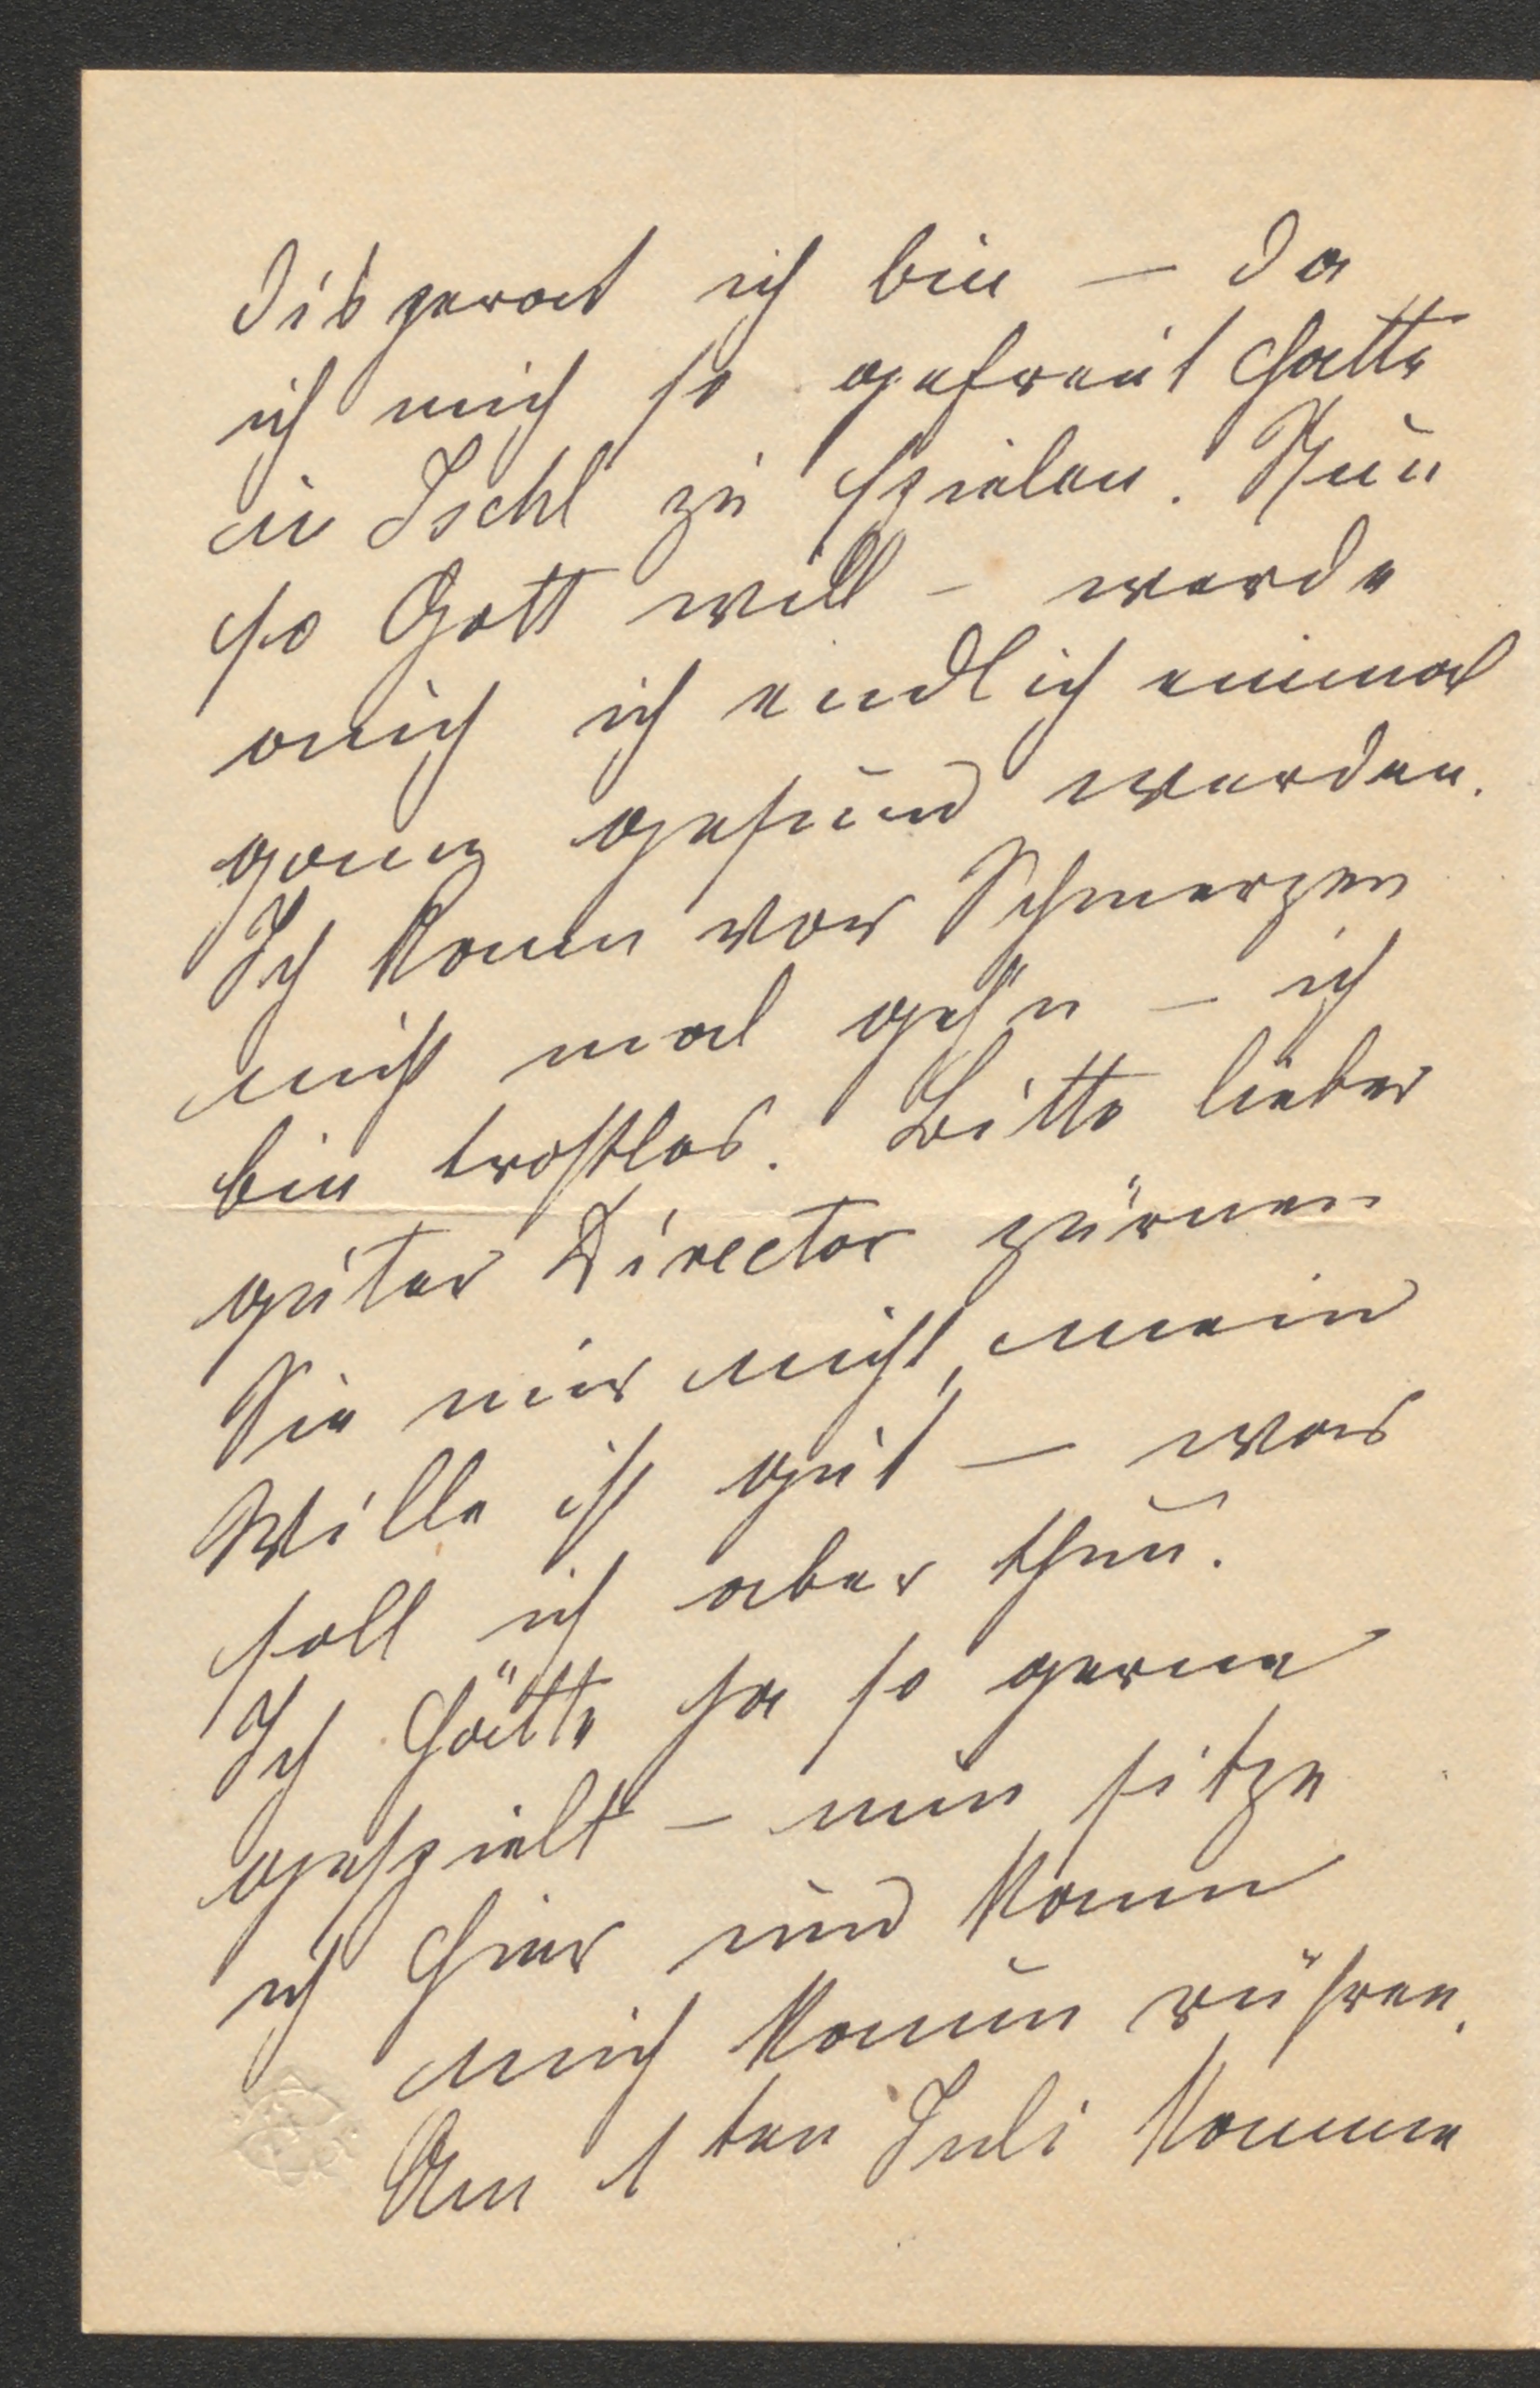 disperat ich bin — da
ich mich so gefreut hatte
in Ischl zu spielen. Nun
so Gott will – werde
auch ich endlich einmal
ganz gesund werden.
Ich kann vor Schmerzen
nicht mal geh'n – ich
bin trostlos. Bitte lieber
guter Director zürnen
Sie mir nicht, mein
Wille ist gut — was
soll ich aber thun.
Ich hätte ja so gerne
gespielt – nun sitze
ich hier und kann
mich kaum rühren.
Am 1ten Juli komme